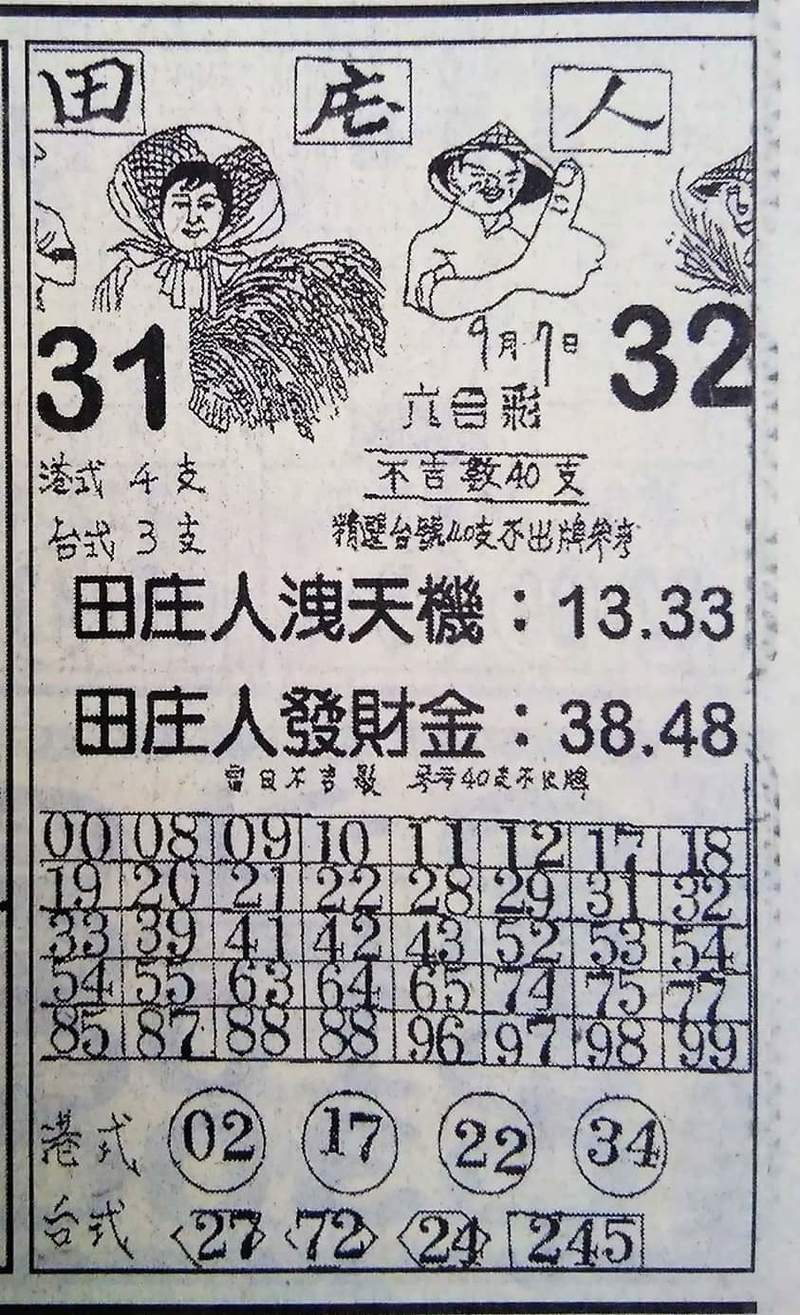 田 庄 人
31
9月7日
32
六合彩
港式 4 支
不吉數40支
台式 3 支
精選台號40支不出牌參考
田庄人洩天機：13.33
田庄人發財金：38.48
當日不吉數 參考40支不出牌
00 08 09 10 11 12 17 18
19 20 21 22 28 29 31 32
33 39 41 42 43 52 53 54
54 55 63 64 65 74 75 77
85 87 88 88 96 97 98 99
港式 02 17 22 34
台式 27 72 24 245